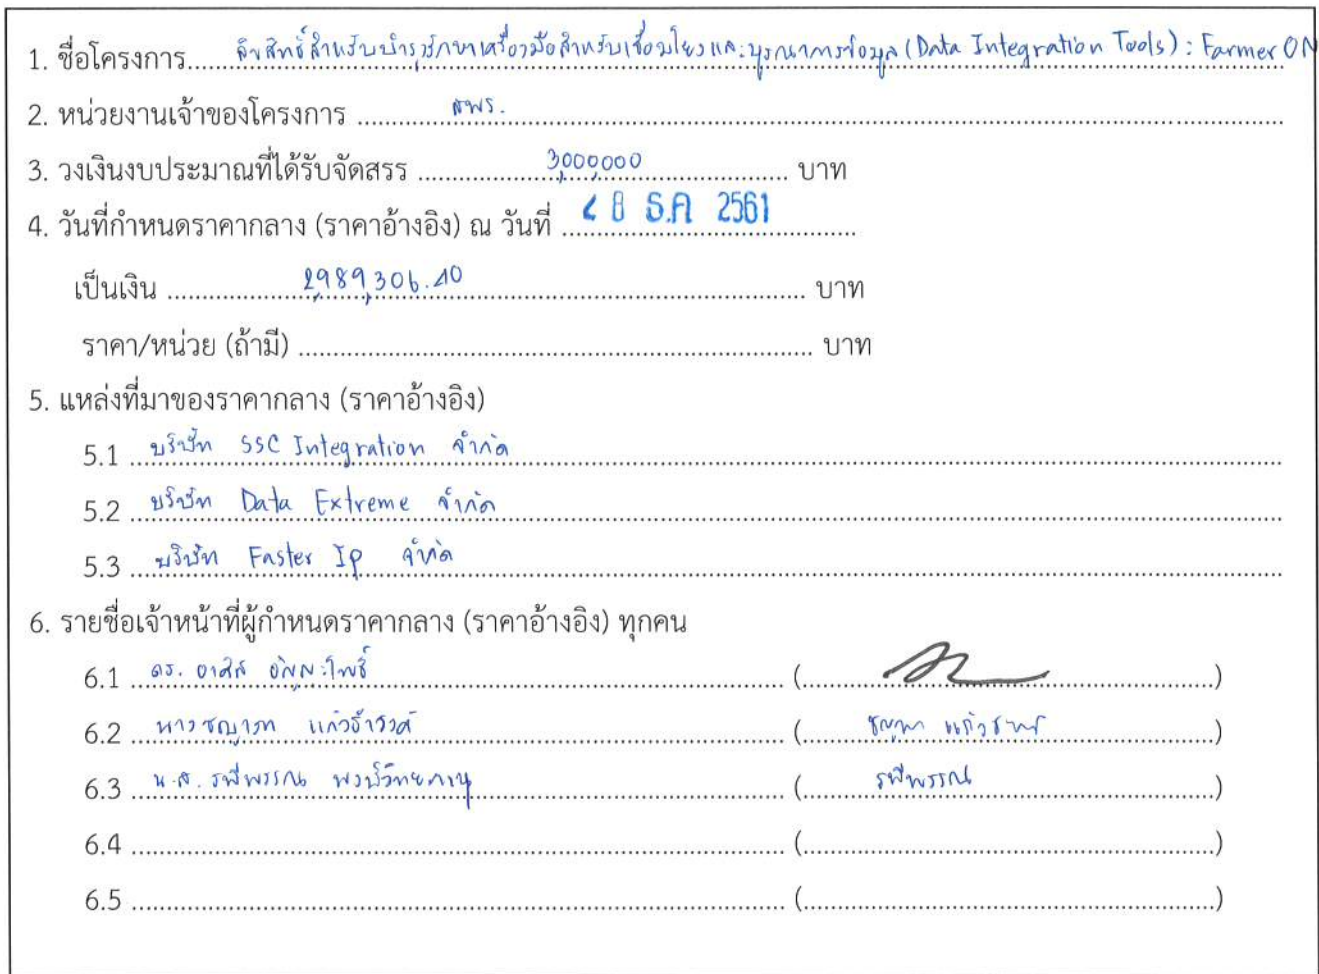 1. ชื่อโครงการ ลิขสิทธิ์สำหรับบำรุงรักษาเครื่องมือสำหรับเชื่อมโยงและบูรณาการข้อมูล (Data Integration Tools) : Farmer ON
2. หน่วยงานเจ้าของโครงการ สพร.
3. วงเงินงบประมาณที่ได้รับจัดสรร 3,000,000 บาท
4. วันที่กำหนดราคากลาง (ราคาอ้างอิง) ณ วันที่ 28 ธ.ค 2561
เป็นเงิน 2,989,306.40 บาท
ราคา/หน่วย (ถ้ามี) บาท
5. แหล่งที่มาของราคากลาง (ราคาอ้างอิง)
5.1 บริษัท SSC Integration จำกัด
5.2 บริษัท Data Extreme จำกัด
5.3 บริษัท Faster Ip จำกัด
6. รายชื่อเจ้าหน้าที่ผู้กำหนดราคากลาง (ราคาอ้างอิง) ทุกคน
6.1 ดร. อาศิส อัญญะโพธิ์ ( )
6.2 นาง แก้วธำรงค์ ( )
6.3 น.ส. รพีพรรณ พงษ์วิทยภานุ ( รพีพรรณ )
6.4 ( )
6.5 ( )